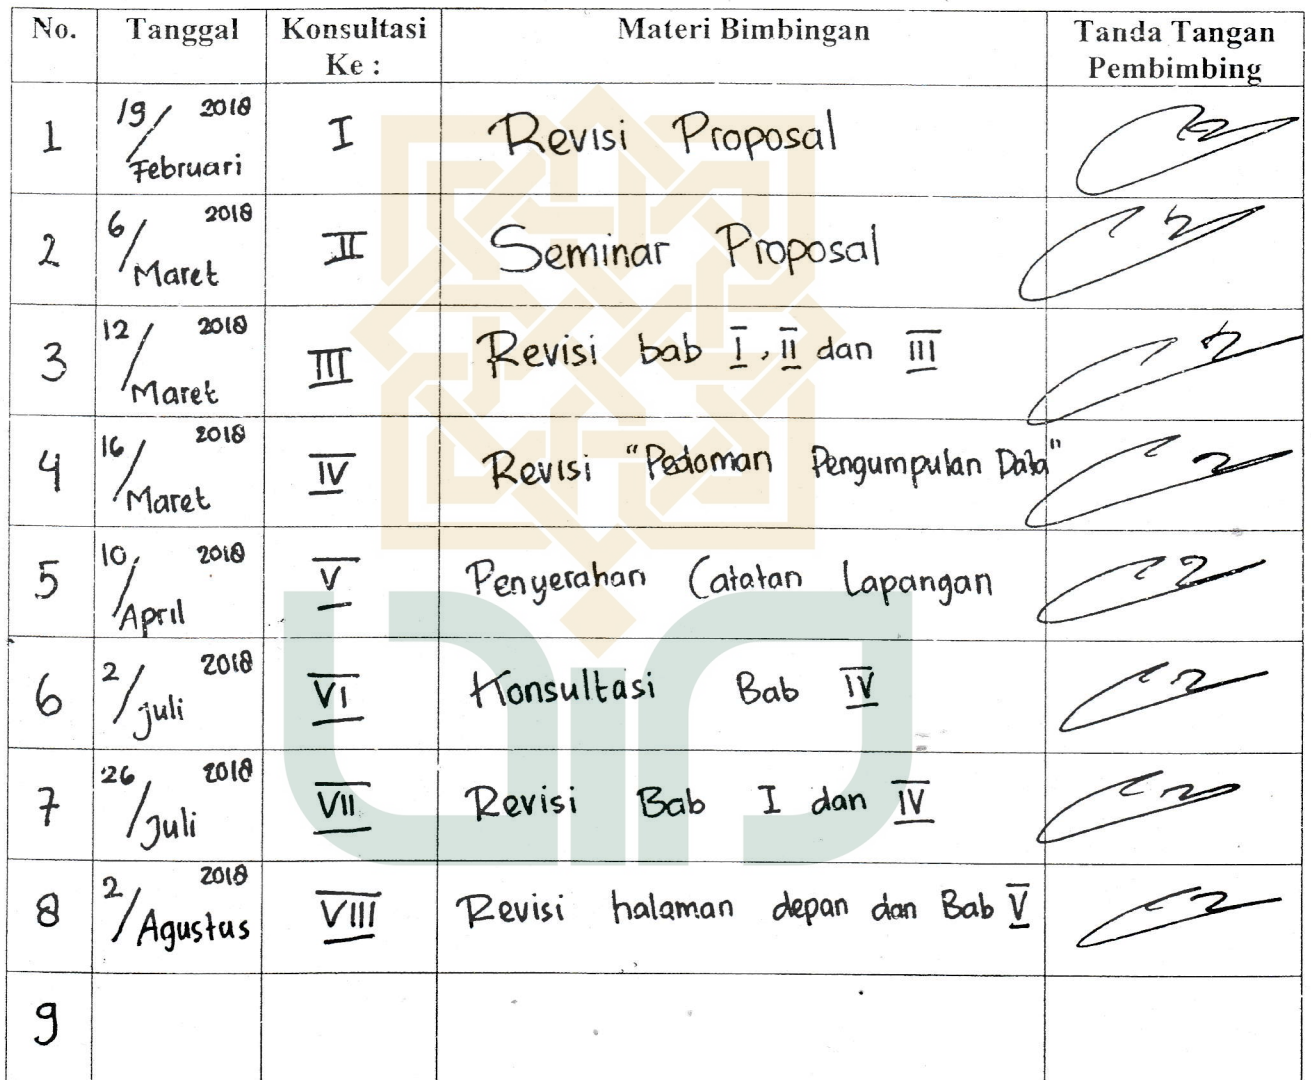 No. Tanggal Konsultasi Ke : Materi Bimbingan Tanda Tangan Pembimbing
1 19/Februari 2018 I Revisi Proposal
2 6/Maret 2018 II Seminar Proposal
3 12/Maret 2018 III Revisi bab I, II dan III
4 16/Maret 2018 IV Revisi "Pedoman Pengumpulan Data"
5 10/April 2018 V Penyerahan Catatan Lapangan
6 2/Juli 2018 VI Konsultasi Bab IV
7 26/Juli 2018 VII Revisi Bab I dan IV
8 2/Agustus 2018 VIII Revisi halaman depan dan Bab V
9